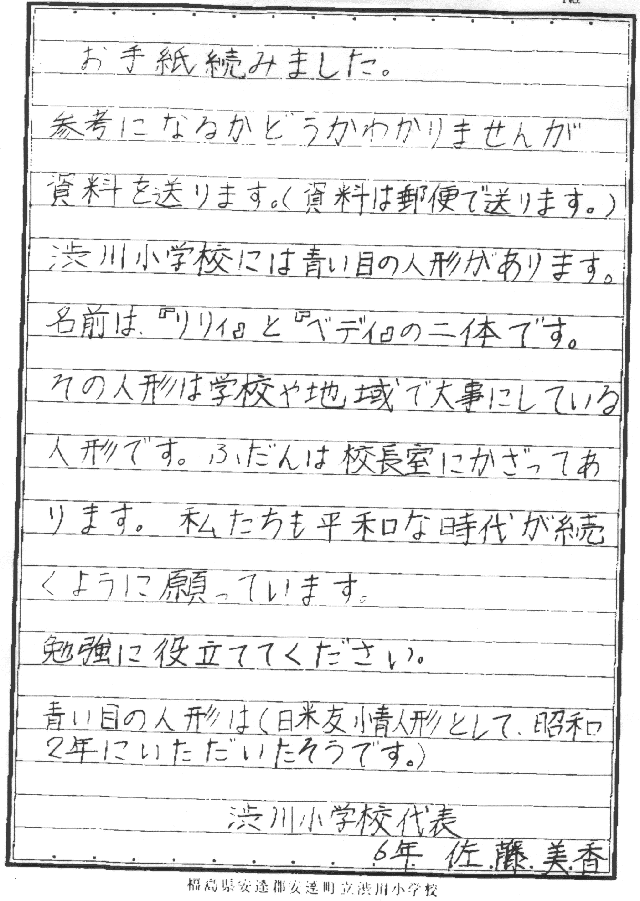 お手紙続みました。
参考になるかどうかわかりませんが
資料を送ります。(資料は郵便で送ります。)
渋川小学校には青い目の人形があります。
名前は、『リリィ』と『ベティ』の二体です。
その人形は学校や地域で大事にしている
人形です。ふだんは校長室にかざってあ
ります。私たちも平和な時代が続
くように願っています。
勉強に役立ててください。
青い目の人形は(日米友情人形として、昭和
2年にいただいたそうです。)
渋川小学校代表
6年 佐藤美香
福島県安達郡安達町立渋川小学校